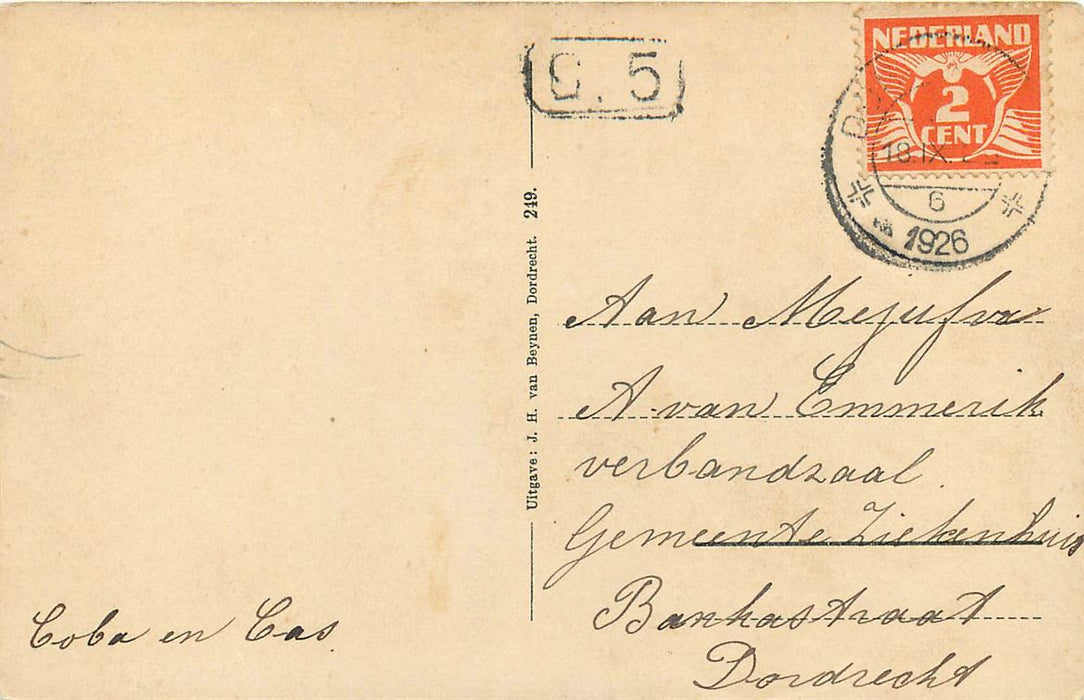 G. 5
NEDERLAND
2
CENT
18.IX.
6
1926
Uitgave: J. H. van Beynen, Dordrecht. 249.
Aan Mejufvr
A. van Emmerik
verbandzaal.
Gemeente Ziekenhuis
Bankastraat
Dordrecht
Coba en Cas